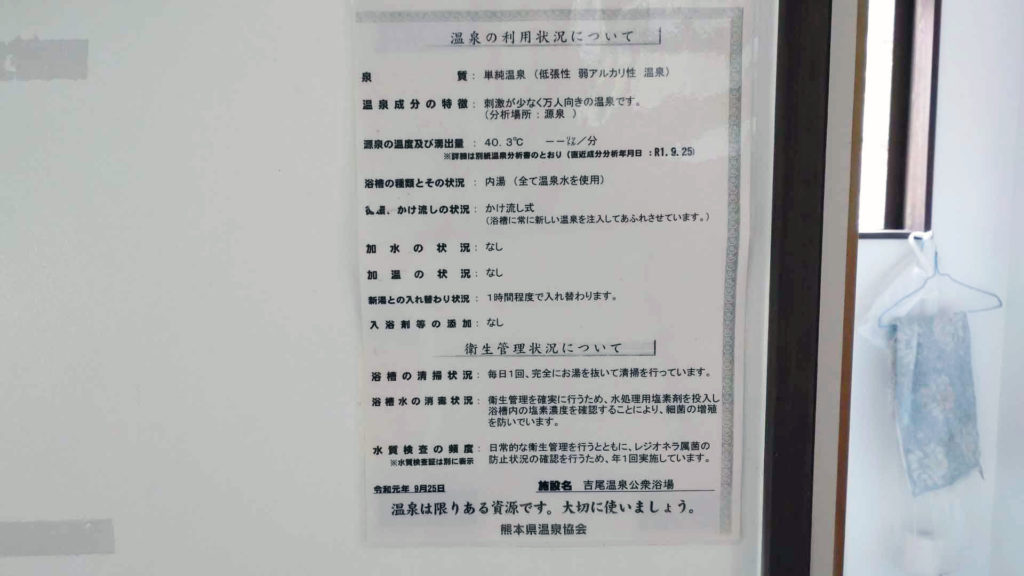 温泉の利用状況について
泉質：単純温泉（低張性 弱アルカリ性 温泉）
温泉成分の特徴：刺激が少なく万人向きの温泉です。
（分析場所：源泉 ）
源泉の温度及び湧出量：40.3℃ ーー㍑／分
※詳細は別紙温泉分析書のとおり（直近成分分析年月日：R1.9.25）
浴槽の種類とその状況：内湯（全て温泉水を使用）
、かけ流しの状況：かけ流し式
（浴槽に常に新しい温泉を注入してあふれさせています。）
加水の状況：なし
加温の状況：なし
新湯との入れ替わり状況：1時間程度で入れ替わります。
入浴剤等の添加：なし
衛生管理状況について
浴槽の清掃状況：毎日1回、完全にお湯を抜いて清掃を行っています。
浴槽水の消毒状況：衛生管理を確実に行うため、水処理用塩素剤を投入し
浴槽内の塩素濃度を確認することにより、細菌の増殖
を防いでいます。
水質検査の頻度：日常的な衛生管理を行うとともに、レジオネラ属菌の
※水質検査証は別に表示 防止状況の確認を行うため、年1回実施しています。
令和元年 9月25日 施設名 吉尾温泉公衆浴場
温泉は限りある資源です。大切に使いましょう。
熊本県温泉協会